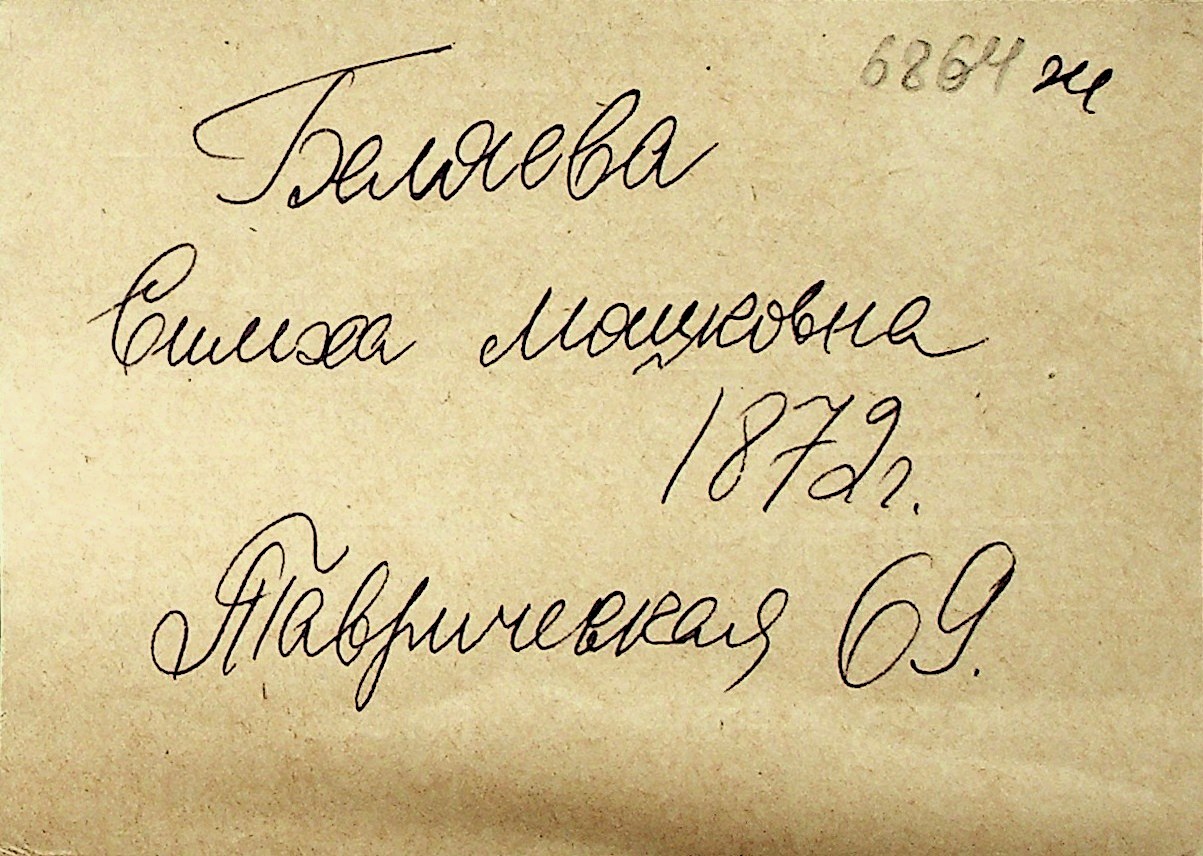 6864 ж
Беляева
Симха Мошковна
1872г.
Таврическая 69.